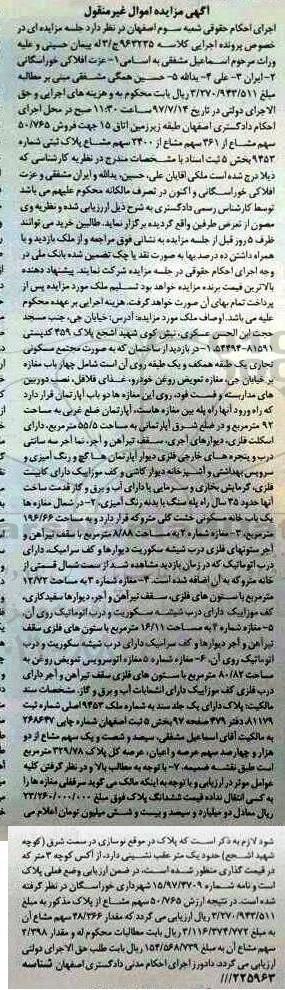 آگهی مزایده اموال غیرمنقول
اجرای احکام حقوقی شعبه سوم اصفهان در نظر دارد جلسه مزایده ای در
خصوص پرونده اجرایی کلاسه ۹۶۲۲۳۵ج/۳ له پیمان حسینی و علیه
وراث مرحوم اسماعیل مشفقی به اسامی ۱- عزت افلاکی خوراسگانی
۲- ایران ۳- علی ۴- یدالله ۵- حسین همگی مشفقی مبنی بر مطالبه
مبلغ ۳/۲۷۰/۹۴۳/۵۱۱ ریال بابت محکوم به و هزینه های اجرایی و حق
الاجرای دولتی در تاریخ ۹۷/۷/۱۴ ساعت ۱۱:۳۰ صبح در محل اجرای
احکام دادگستری اصفهان طبقه زیرزمین اتاق ۱۵ جهت فروش ۵۰/۷۶۵
سهم مشاع از ۳۶۱ سهم مشاع از ۲۴۰۰ سهم مشاع پلاک ثبتی شماره
۹۴۵۳ بخش ۵ ثبت اسناد با مشخصات مندرج در نظریه کارشناسی که
ذیلا درج شده است ملکی آقایان علی، حسین، یدالله و ایران مشفقی و عزت
افلاکی خوراسگانی و اکنون در تصرف مالکانه محکوم علیهم می باشد
توسط کارشناس رسمی دادگستری به شرح ذیل ارزیابی شده و نظریه وی
مصون از تعرض طرفین واقع گردیده برگزار نماید. طالبین خرید می توانند
ظرف ۵ روز قبل از جلسه مزایده به نشانی فوق مراجعه و از ملک بازدید و با
همراه داشتن ده درصد بها به صورت نقد یا چک تضمین شده بانک ملی در
وجه اجرای احکام حقوقی در جلسه مزایده شرکت نمایند. پیشنهاد دهنده
بالاترین قیمت برنده مزایده خواهد بود تسلیم ملک مورد مزایده پس از
پرداخت تمام بهای آن صورت خواهد گرفت. هزینه اجرایی بر عهده محکوم
علیه می باشد. اوصاف ملک مورد مزایده: آدرس: خیابان جی، جنب مسجد
حجت ابن الحسن عسکری، نبش کوی شهید اشجع پلاک ۴۵۹ کدپستی
در بازدید از ساختمان که به صورت مجتمع مسکونی
تجاری یک طبقه همکف و یک طبقه روی آن است شامل چهار باب مغازه
بر خیابان جی، مغازه تعویض روغن خودرو، غذای فلافل، نصب دوربین
های مداربسته و فست فود، روی این مغازه ها دو باب آپارتمان قرار دارد
که راه ورود آنها راه پله بین مغازه هاست، آپارتمان ضلع غربی به مساحت
۹۲ مترمربع و در ضلع شرق آپارتمانی به مساحت ۵۵/۵ مترمربع، دارای
اسکلت فلزی، دیوارهای آجری، سقف تیرآهن و آجر، نما آجر سه سانتی
درب و پنجره های خارجی فلزی دیوار آپارتمان ها گچ و رنگ آمیزی و
سرویس بهداشتی و آشپزخانه دیوار کاشی و کف موزاییک دارای کابینت
فلزی، گرمایش بخاری و سرمایی با دارای آب و برق و گاز قدمت ساخت
آنها حدود ۳۵ سال راه پله سنگ با بدنه رنگ آمیزی. ۲- در شمال مغازه ها
یک باب خانه مسکونی خشت گلی متروکه قرار دارد و به مساحت ۱۹۶/۶۶
مترمربع، ۳- مغازه شماره ۲ به مساحت ۸/۸۸ مترمربع با سقف تیرآهن و
آجر ستونهای فلزی درب شیشه سکوریت دیوارها و کف سرامیک، دارای
درب اتوماتیک که در زمان بازدید مشاهده شد از سمت شمال قسمتی از
خانه متروکه به آن اضافه شده است. ۴- مغازه شماره ۳ به مساحت ۱۲/۷۲
مترمربع با ستون های فلزی، سقف تیرآهن و آجر، دیوارها سفیدکاری،
کف موزاییک دارای درب شیشه سکوریت و درب اتوماتیک روی آن،
۵- مغازه شماره ۴ به مساحت ۱۶/۱۱ مترمربع با ستون های فلزی سقف
تیرآهن و آجر دیوارها و کف سرامیک دارای درب شیشه سکوریت و درب
اتوماتیک روی آن. ۶- مغازه شماره ۵ مغازه اتوسرویس تعویض روغن به
مساحت ۸۰/۸۲ مترمربع با ستون های فلزی سقف تیرآهن و آجر دارای
درب فلزی کف موزاییک دارای انشعابات آب و برق و گاز. مشخصات سند
مالکیت: پلاک دارای یک جلد سند به شماره ملک ۹۴۵۳ اصلی شماره ثبت
۸۱۱۷۹ دفتر ۴۷۹ صفحه ۹۷ بخش ۵ ثبت اصفهان شماره چاپی ۲۶۸۶۴۷
به مالکیت آقای اسماعیل مشفقی، سیصد و شصت و یک سهم مشاع از دو
هزار و چهارصد سهم عرصه و اعیان، عرصه کل پلاک ۳۲۹/۷۸ مترمربع
است طبق نقشه ضمیمه، ۷- با توجه به مطالب بالا و در نظر گرفتن کلیه
عوامل موثر در ارزیابی و با توجه به اینکه مالک می گوید سرقفلی مغازه ها را
به کسی انتقال نداده قیمت ششدانگ پلاک فوق مبلغ ۲۳/۲۶۰/۰۰۰/۰۰۰
ریال معادل دو میلیارد و سیصد و بیست و شش میلیون تومان اعلام می
شود لازم به ذکر است که پلاک در موقع نوسازی در سمت شرق (کوچه
شهید اشجع) حدود یک متر عقب نشینی دارد، از آکس کوچه ۳ متر که
در قیمت گذاری منظور شده است، در ضمن ارزیابی وضع فعلی پلاک
است و نامه شماره ۱۵/۹۷/۳۷۰۹ شهرداری خوراسگان در نظر گرفته
شده است. در نتیجه ارزش ۵۰/۷۶۵ سهم مشاع از پلاک مذکور به مبلغ
۳/۲۷۰/۹۴۳/۵۱۱ ریال ارزیابی می گردد که مقدار ۴۸/۳۶۶ سهم مشاع آن
به مبلغ ۳/۱۱۶/۳۷۴/۷۷۲ ریال بابت مطالبات محکوم له و مقدار ۲/۳۹۸
سهم مشاع آن به مبلغ ۱۵۴/۵۶۸/۷۳۹ ریال بابت طلب حق الاجرای دولتی
ارزیابی می گردد. دادورز اجرای احکام مدنی دادگستری اصفهان شناسه
۲۲۵۹۶۳///